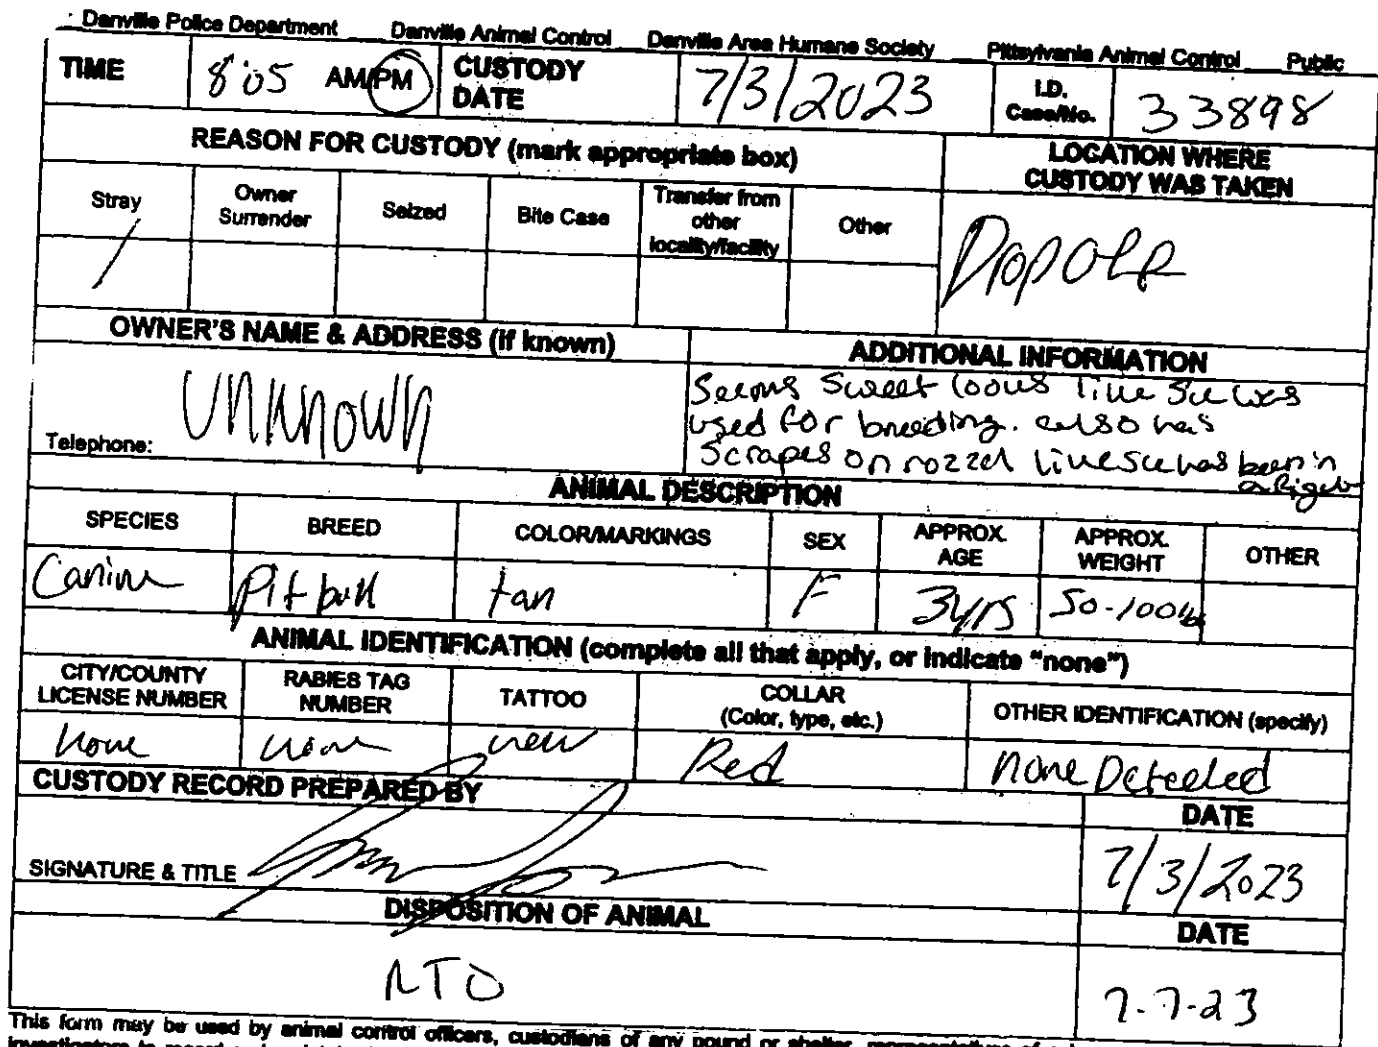 Danville Police Department ___ Danville Animal Control ___ Danville Area Humane Society ___ Pittsylvania Animal Control ___ Public
TIME 8:05 AM/PM CUSTODY DATE 7/3/2023 I.D. Case/No. 33898
REASON FOR CUSTODY (mark appropriate box)
LOCATION WHERE CUSTODY WAS TAKEN
Stray Owner Surrender Seized Bite Case Transfer from other locality/facility Other
/
Drop Off
OWNER'S NAME & ADDRESS (if known)
Unknown
Telephone:
ADDITIONAL INFORMATION
Seems Sweet looks like she was
used for breeding. also has
Scrapes on nozzel like she has been in
a fight
ANIMAL DESCRIPTION
SPECIES BREED COLOR/MARKINGS SEX APPROX. AGE APPROX. WEIGHT OTHER
Canine Pit bull tan F 3yrs 50-100lb
ANIMAL IDENTIFICATION (complete all that apply, or indicate "none")
CITY/COUNTY LICENSE NUMBER RABIES TAG NUMBER TATTOO COLLAR (Color, type, etc.) OTHER IDENTIFICATION (specify)
none none Red none Detected
CUSTODY RECORD PREPARED BY
DATE
SIGNATURE & TITLE 7/3/2023
DISPOSITION OF ANIMAL
DATE
RTO 7-7-23
This form may be used by animal control officers, custodians of any pound or shelter, representatives of